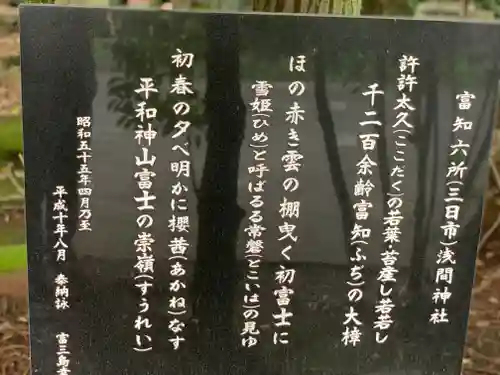 富知六所(三日市)浅間神社
許許太久(ここだく)の若葉・苔産し若若し
千二百余齢富知(ふぢ)の大樟
ほの赤き雲の棚曳く初富士に
雪姫(ひめ)と呼ばるる常磐(とこいは)の見ゆ
初春の夕べ明かに櫻茜(あかね)なす
平和神山富士の崇嶺(すうれい)
昭和五十五年四月乃至
平成十年八月 奉納詠 富三島